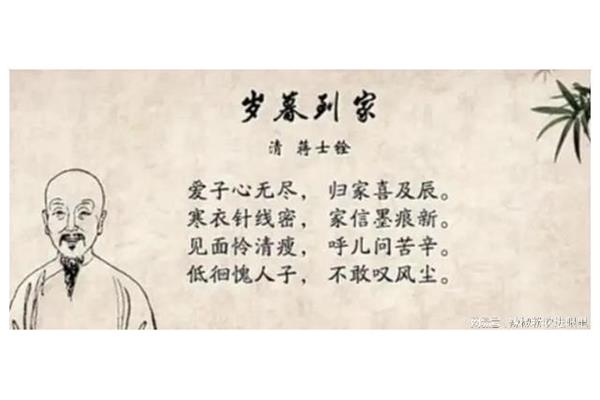 岁暮到家
清 蒋士铨
爱子心无尽， 归家喜及辰。
寒衣针线密， 家信墨痕新。
见面怜清瘦， 呼儿问苦辛。
低徊愧人子， 不敢叹风尘。